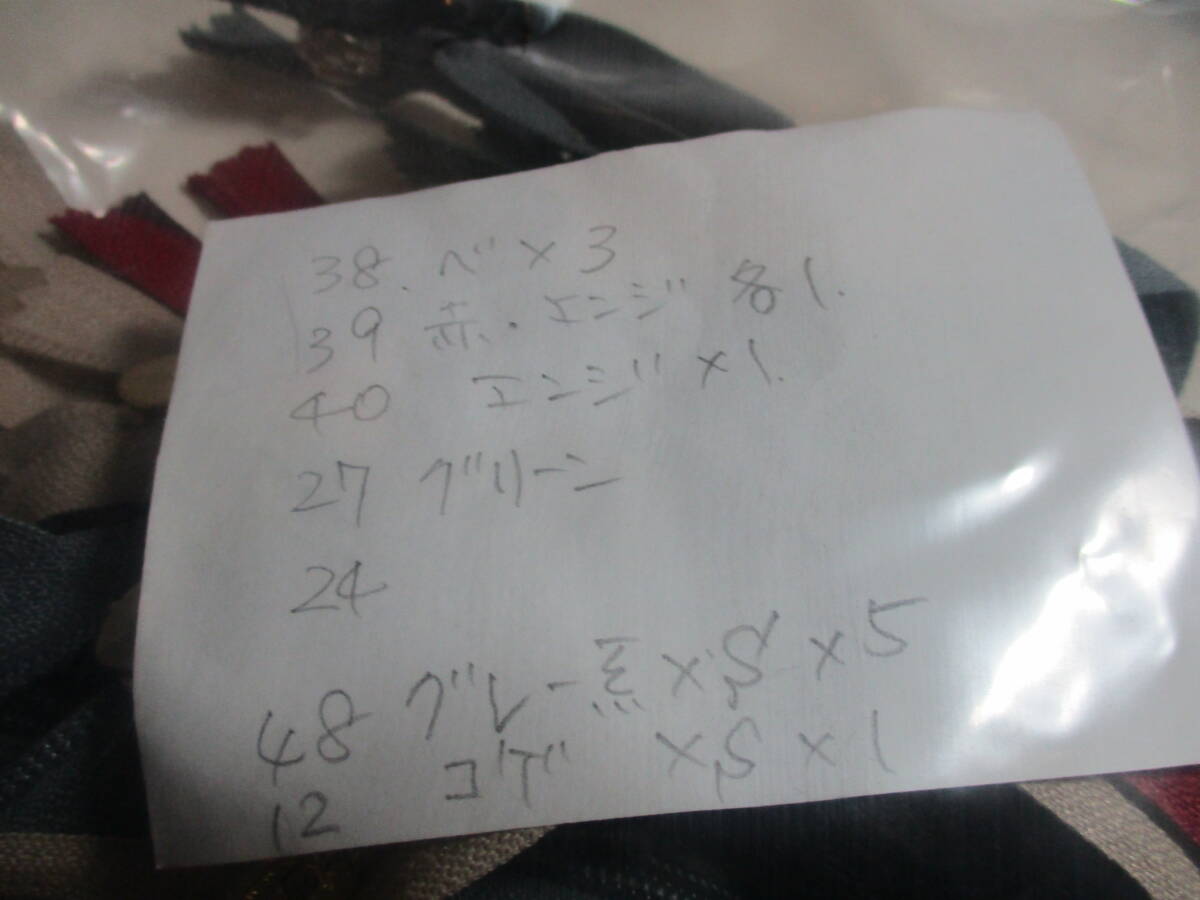 38. ベ×3
39 赤・エンジ 各1.
40 エンジ×1.
27 グリーン
24
48 グレー ×5
12 ×1